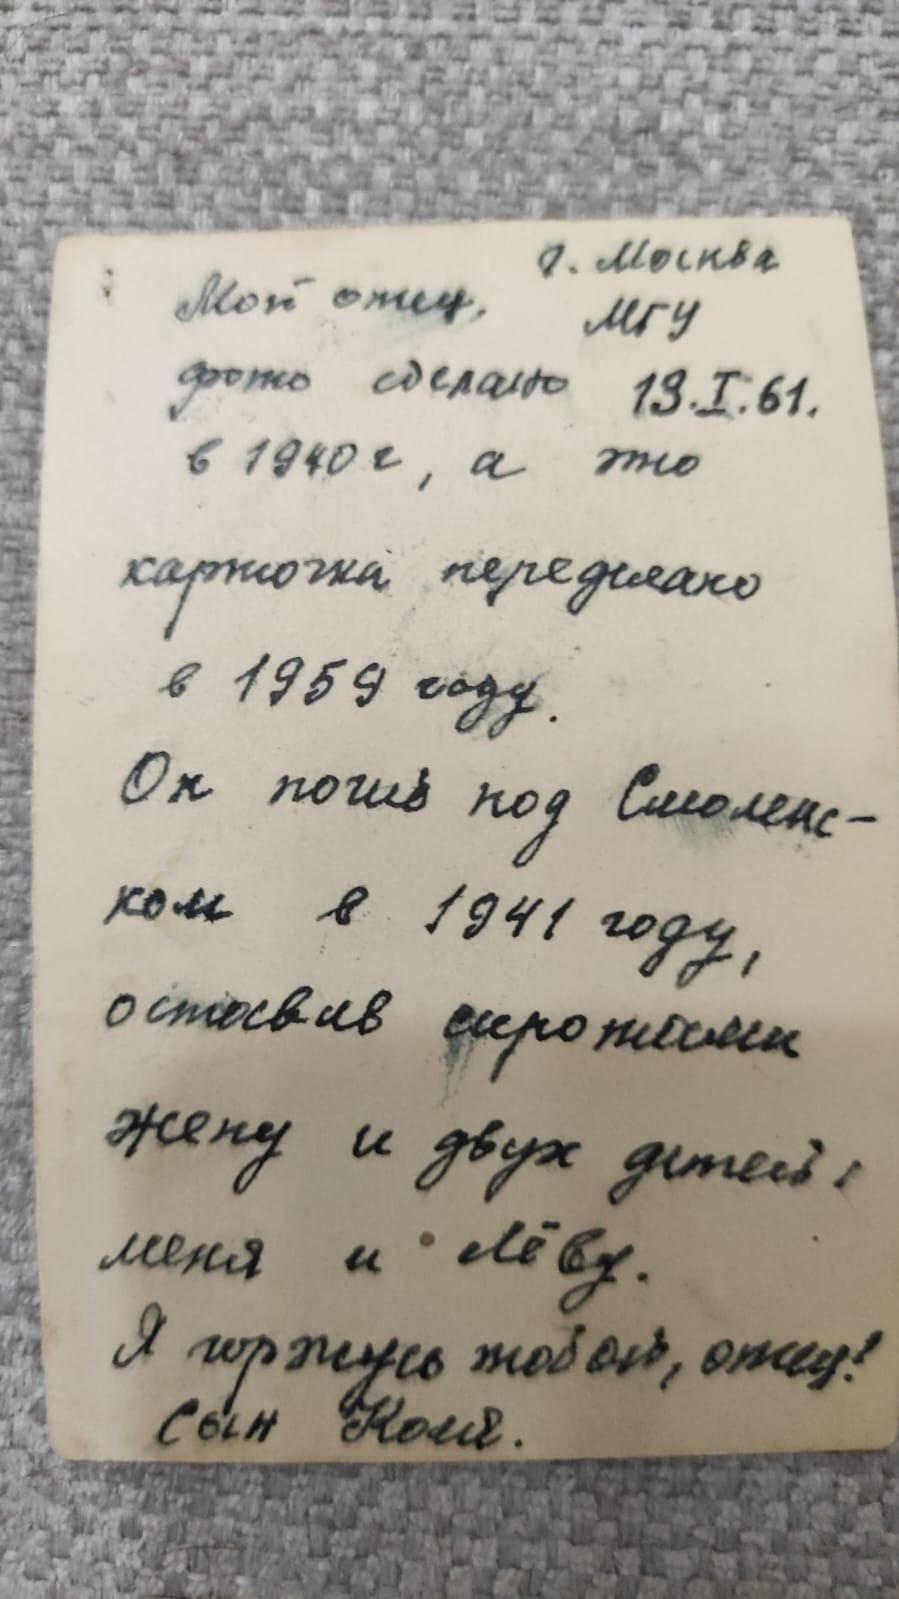 г. Москва
Мой отец, МГУ
фото сделано 19.I.61.
в 1940 г, а это
карточка переделано
в 1959 году.
Он погиб под Смоленс-
ком в 1941 году,
оставив сиротами
жену и двух детей:
меня и Лёву.
Я горжусь тобой, отец!
Сын Коля.